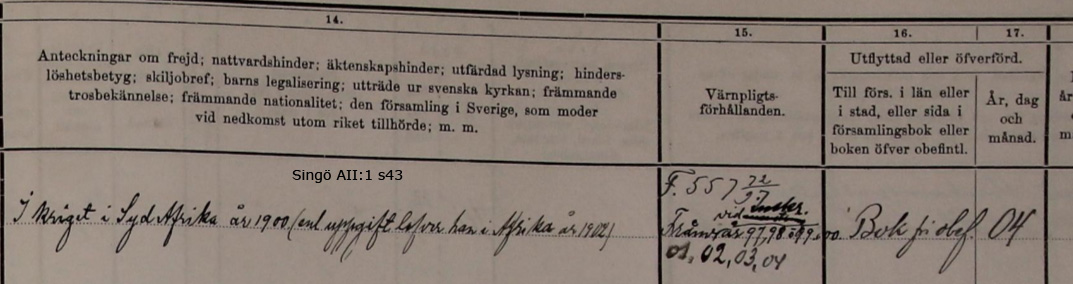 14.
Anteckningar om frejd; nattvardshinder; äktenskapshinder; utfärdad lysning; hinders-
löshetsbetyg; skiljobref; barns legalisering; utträde ur svenska kyrkan; främmande
trosbekännelse; främmande nationalitet; den församling i Sverige, som moder
vid nedkomst utom riket tillhörde; m. m.
15.
Värnpligts-
förhållanden.
16.
17.
Utflyttad eller öfverförd.
Till förs. i län eller
i stad, eller sida i
församlingsbok eller
boken öfver obefintl.
År, dag
och
månad.
Singö AII:1 s43
I kriget i Syd Afrika år 1900 (enl uppgift lefver han i Afrika år 1902)
F. 557 72/97
vid
Frånvar. 97, 98 o 99 o 00.
01, 02, 03, 04
Bok för obef.
04